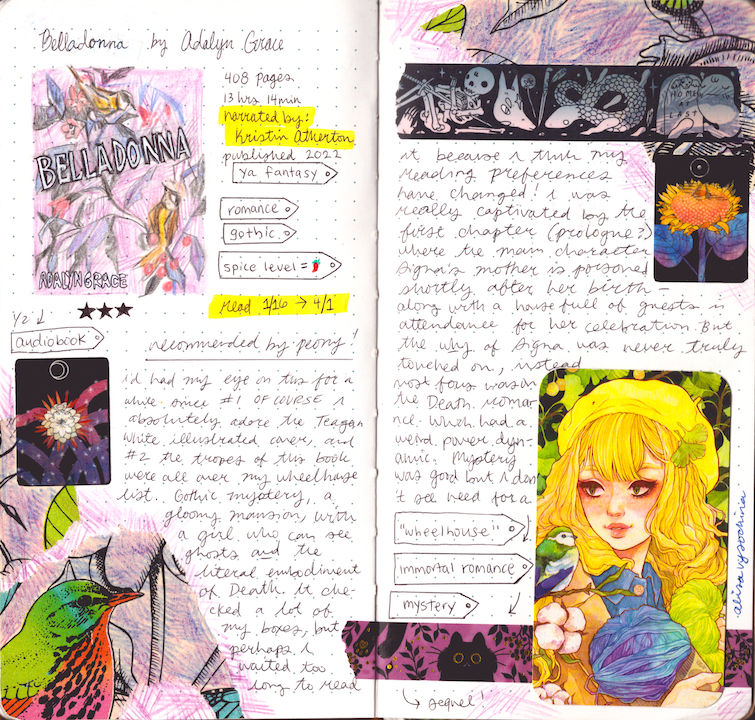 Belladonna by Adalyn Grace
BELLADONNA
ADALYN GRACE
408 pages
13 hrs 14min
narrated by:
Kristin Atherton
published 2022
ya fantasy
romance
gothic
spice level =
read 1/16 → 4/1
audiobook
recommended by peony!
i'd had my eye on this for a
while since #1 OF COURSE i
absolutely adore the Teagan
White illustrated cover, and
#2 the tropes of this book
were all over my wheelhouse
list. Gothic mystery, a
gloomy mansion, with
a girl who can see
ghosts and the
literal embodiment
of Death. It che-
cked a lot of
my boxes, but
perhaps i
waited too
long to read
it because i think my
reading preferences
have changed! i was
really captivated by the
first chapter (prologue?)
where the main character
Signa's mother is poisoned
shortly after her birth –
along with a house full of guests in
attendance for her celebration. But
the why of Signa was never truly
touched on, instead
most focus was on
the Death roma-
nce. Which had a
weird power dyn-
amic. Mystery
was good but i don
't see need for a
"wheelhouse"
immortal romance
mystery
↳ sequel!
alisa vysochina